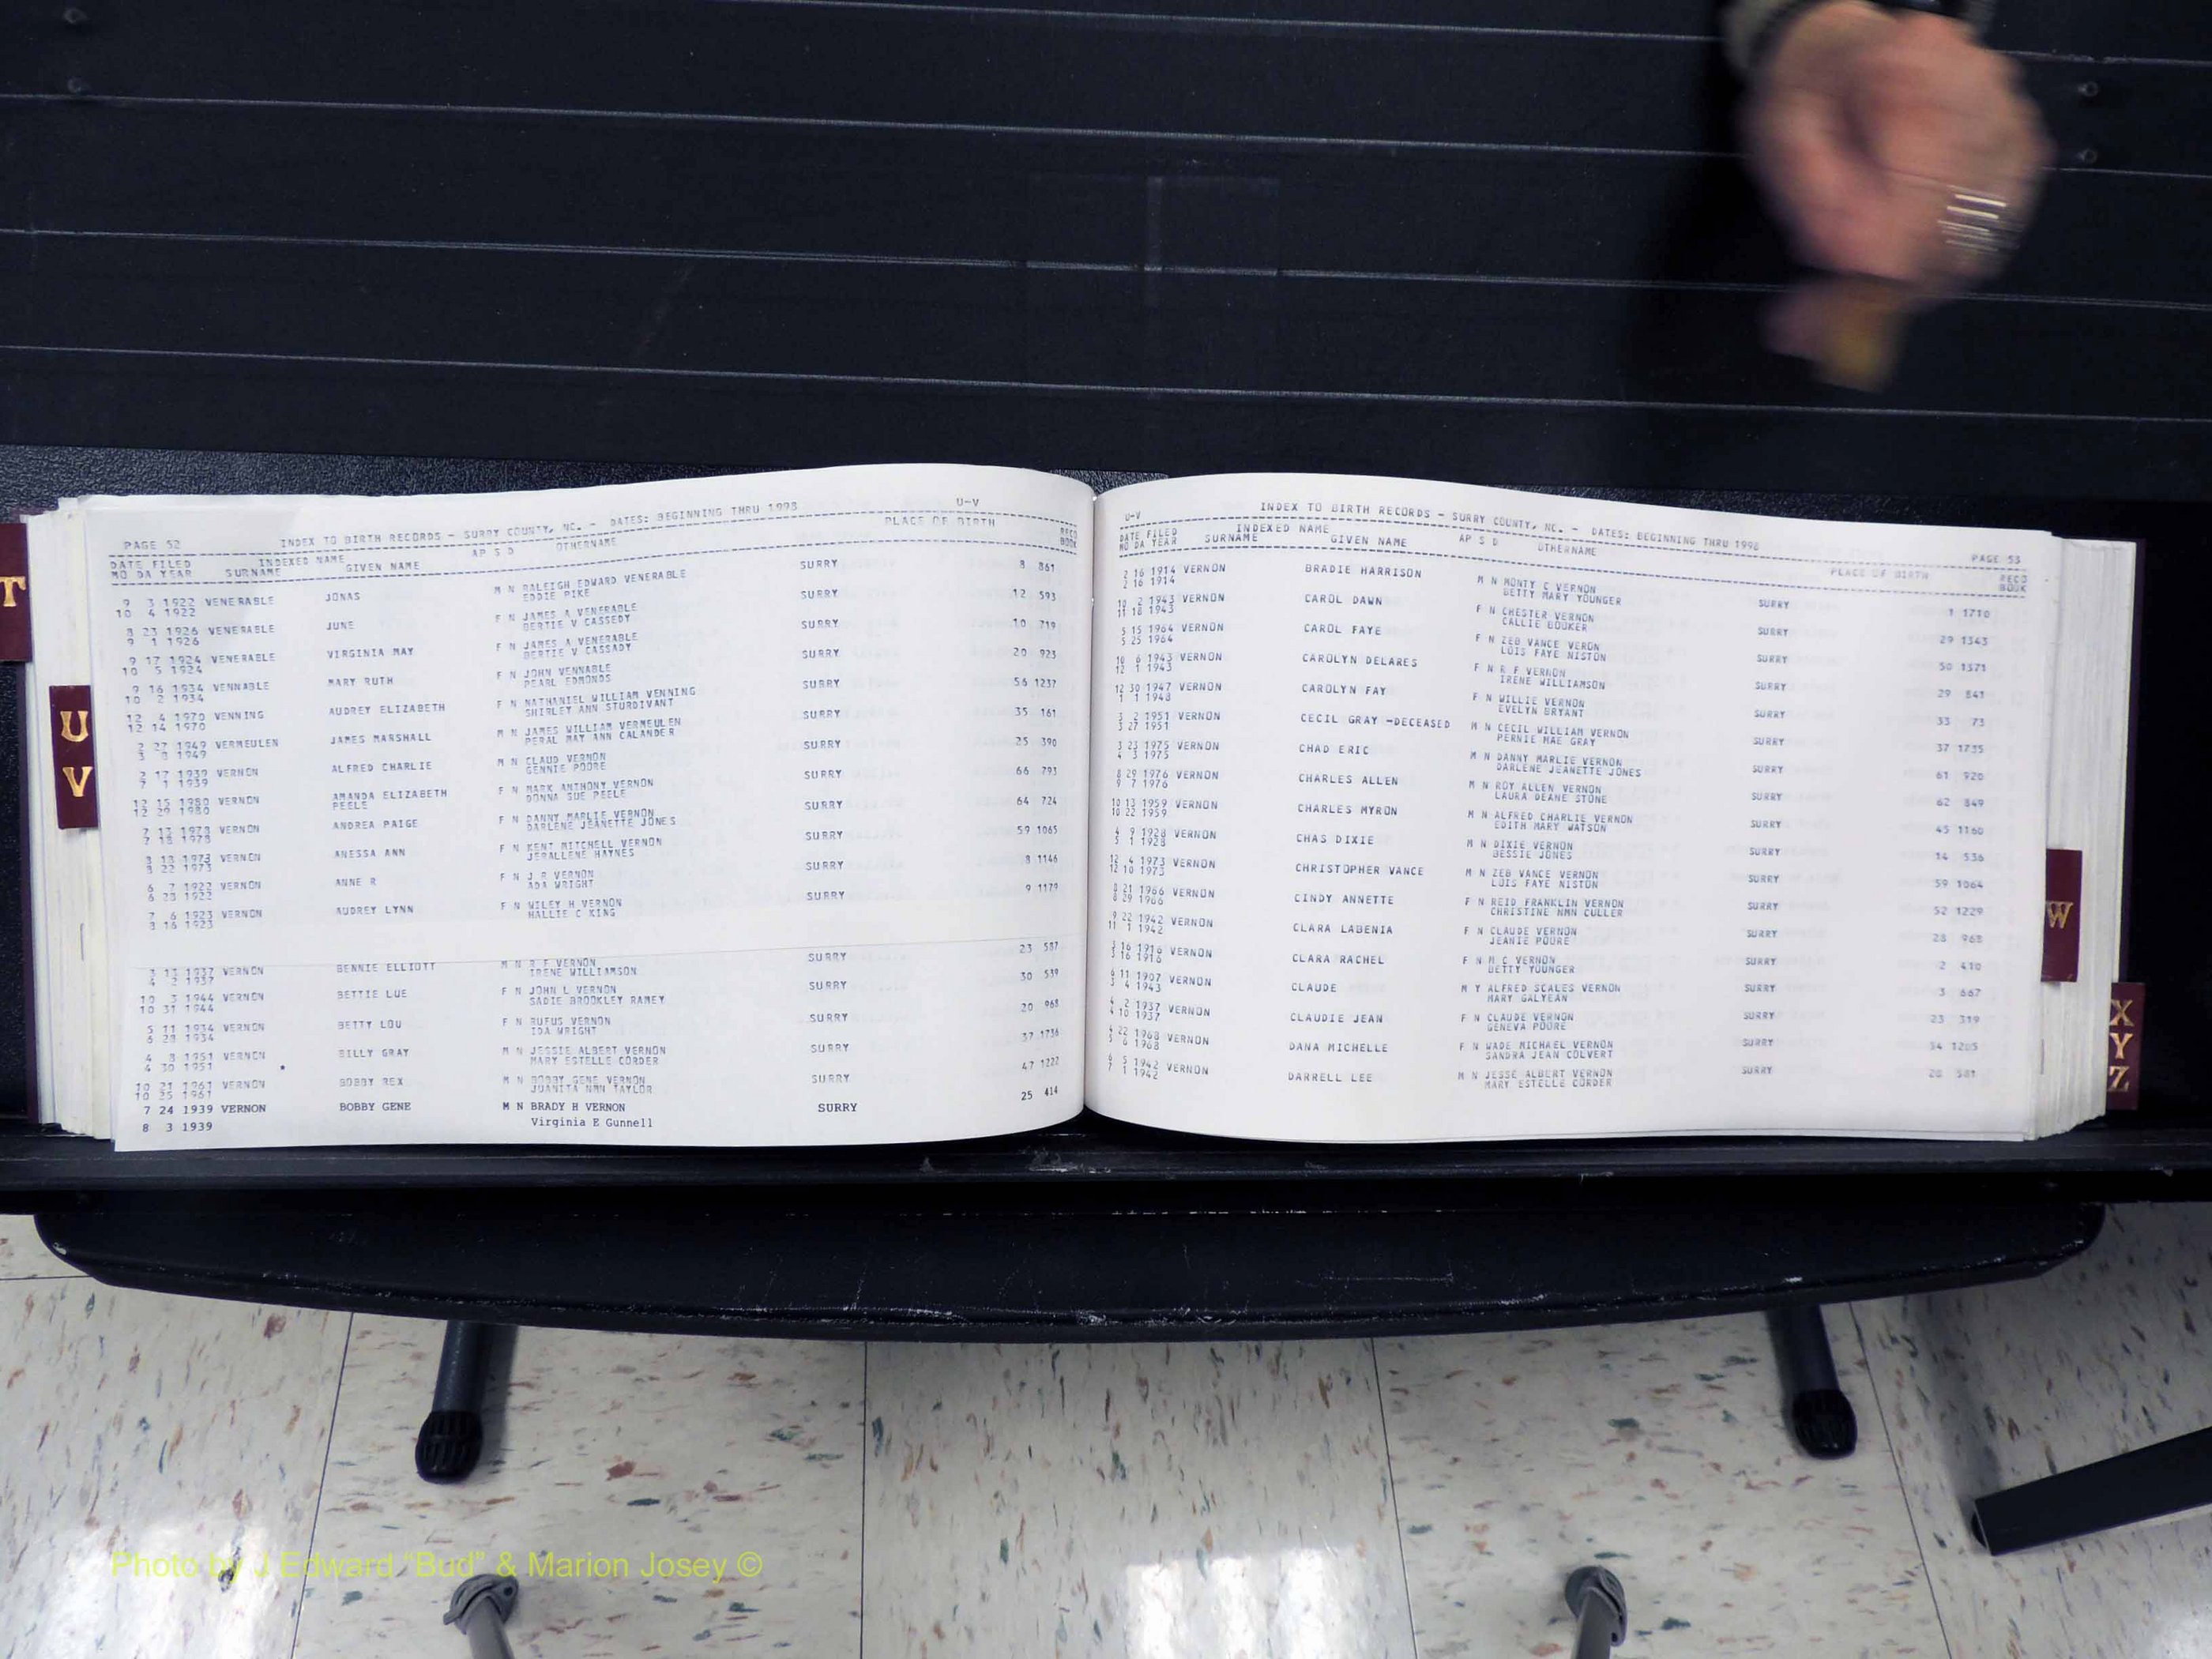 T
U
V
W
X
Y
Z
PAGE 52 INDEX TO BIRTH RECORDS - SURRY COUNTY, NC. - DATES: BEGINNING THRU 1998 U-V
DATE FILED INDEXED NAME AP S D OTHERNAME PLACE OF BIRTH RECO
MO DA YEAR SURNAME GIVEN NAME BOOK
9 3 1922 VENERABLE JONAS M N RALEIGH EDWARD VENERABLE SURRY 8 861
10 4 1922 EDDIE PIKE
8 23 1926 VENERABLE JUNE F N JAMES A VENERABLE SURRY 12 593
9 1 1926 BERTIE V CASSEDY
9 17 1924 VENERABLE VIRGINIA MAY F N JAMES A VENERABLE SURRY 10 719
10 5 1924 BERTIE V CASSADY
9 16 1934 VENNABLE MARY RUTH F N JOHN VENNABLE SURRY 20 923
10 2 1934 PEARL EDMONDS
12 4 1970 VENNING AUDREY ELIZABETH F N NATHANIEL WILLIAM VENNING SURRY 56 1237
12 14 1970 SHIRLEY ANN STURDIVANT
2 27 1949 VERMEULEN JAMES MARSHALL M N JAMES WILLIAM VERMEULEN SURRY 35 161
3 8 1949 PERAL MAY ANN CALANDER
2 17 1939 VERNON ALFRED CHARLIE M N CLAUD VERNON SURRY 25 390
7 1 1939 GENNIE POORE
12 15 1980 VERNON AMANDA ELIZABETH F N MARK ANTHONY VERNON SURRY 66 793
12 29 1980 PEELE DONNA SUE PEELE
7 13 1978 VERNON ANDREA PAIGE F N DANNY MARLIE VERNON SURRY 64 724
7 18 1978 DARLENE JEANETTE JONES
8 18 1973 VERNON ANESSA ANN F N KENT MITCHELL VERNON SURRY 59 1065
8 22 1973 JERALLENE HAYNES
6 7 1922 VERNON ANNE R F N J R VERNON SURRY 8 1146
6 28 1922 ADA WRIGHT
7 6 1923 VERNON AUDREY LYNN F N WILEY H VERNON SURRY 9 1179
8 16 1923 HALLIE C KING
3 13 1937 VERNON BENNIE ELLIOTT M N R F VERNON SURRY 23 587
4 2 1937 IRENE WILLIAMSON
10 3 1944 VERNON BETTIE LUE F N JOHN L VERNON SURRY 30 539
10 31 1944 SADIE BROOKLEY RAMEY
5 11 1934 VERNON BETTY LOU F N RUFUS VERNON SURRY 20 968
6 28 1934 IDA WRIGHT
4 8 1951 VERNON BILLY GRAY M N JESSIE ALBERT VERNON SURRY 37 1736
4 30 1951 MARY ESTELLE CORDER
10 21 1961 VERNON BOBBY REX M N BOBBY GENE VERNON SURRY 47 1222
10 25 1961 JUANITA NMN TAYLOR
7 24 1939 VERNON BOBBY GENE M N BRADY H VERNON SURRY 25 414
8 3 1939 Virginia E Gunnell
U-V INDEX TO BIRTH RECORDS - SURRY COUNTY, NC. - DATES: BEGINNING THRU 1998 PAGE 53
DATE FILED INDEXED NAME AP S D OTHERNAME PLACE OF BIRTH RECO
MO DA YEAR SURNAME GIVEN NAME BOOK
2 16 1914 VERNON BRADIE HARRISON M N MONTY C VERNON SURRY 1 1710
2 16 1914 BETTY MARY YOUNGER
10 2 1943 VERNON CAROL DAWN F N CHESTER VERNON SURRY 29 1343
11 18 1943 CALLIE BOOKER
5 15 1964 VERNON CAROL FAYE F N ZEB VANCE VERON SURRY 50 1371
5 25 1964 LOIS FAYE NISTON
10 6 1943 VERNON CAROLYN DELARES F N R F VERNON SURRY 29 841
12 1 1943 IRENE WILLIAMSON
12 30 1947 VERNON CAROLYN FAY F N WILLIE VERNON SURRY 33 73
1 1 1948 EVELYN BRYANT
3 2 1951 VERNON CECIL GRAY -DECEASED M N CECIL WILLIAM VERNON SURRY 37 1735
3 27 1951 PERNIE MAE GRAY
3 23 1975 VERNON CHAD ERIC M N DANNY MARLIE VERNON SURRY 61 920
4 3 1975 DARLENE JEANETTE JONES
8 29 1976 VERNON CHARLES ALLEN M N ROY ALLEN VERNON SURRY 62 849
9 7 1976 LAURA DEANE STONE
10 13 1959 VERNON CHARLES MYRON M N ALFRED CHARLIE VERNON SURRY 45 1160
10 22 1959 EDITH MARY WATSON
4 9 1928 VERNON CHAS DIXIE M N DIXIE VERNON SURRY 14 536
5 1 1928 BESSIE JONES
12 4 1973 VERNON CHRISTOPHER VANCE M N ZEB VANCE VERNON SURRY 59 1064
12 10 1973 LOIS FAYE NISTON
8 21 1966 VERNON CINDY ANNETTE F N REID FRANKLIN VERNON SURRY 52 1229
8 29 1966 CHRISTINE NMN CULLER
9 22 1942 VERNON CLARA LABENIA F N CLAUDE VERNON SURRY 28 968
11 1 1942 JEANIE POORE
3 16 1916 VERNON CLARA RACHEL F N M C VERNON SURRY 2 410
3 16 1916 BETTY YOUNGER
6 11 1907 VERNON CLAUDE M Y ALFRED SCALES VERNON SURRY 3 667
3 4 1943 MARY GALYEAN
4 2 1937 VERNON CLAUDIE JEAN F N CLAUDE VERNON SURRY 23 319
4 10 1937 GENEVA POORE
4 22 1968 VERNON DANA MICHELLE F N WADE MICHAEL VERNON SURRY 54 1205
5 6 1968 SANDRA JEAN COLVERT
6 5 1942 VERNON DARRELL LEE M N JESSE ALBERT VERNON SURRY 28 581
7 1 1942 MARY ESTELLE CORDER
Photo by J Edward "Bud" & Marion Josey ©